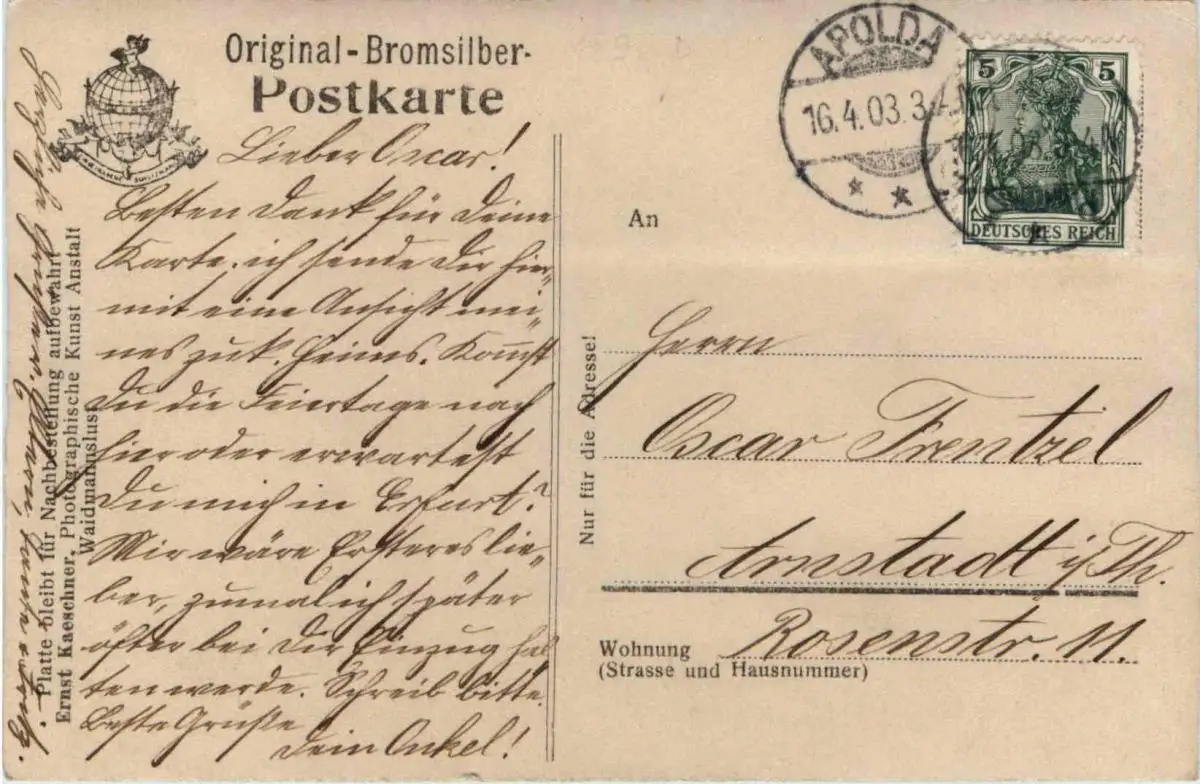 Original-Bromsilber-
Postkarte
Lieber Oscar!
Besten Dank für Deine
Karte. ich sende Dir hier-
mit eine Ansicht mei-
nes zuk. Heims. Kommst
Du die Feiertage nach
hier oder erwartest
Du mich in Erfurt?
Mir wäre Ersteres lie-
ber, zumal ich später
öfter bei Dir Einzug hal
ten werde. Schreib bitte.
Beste Grüße
Dein Onkel!
Herzliche Grüße
Platte bleibt für Nachbestellung aufbewahrt
Ernst Kaeschner, Photographische Kunst Anstalt
Waidmannslust
Nur für die Adresse!
APOLDA
16.4.03.3
5 5
DEUTSCHES REICH
An
Herrn
Oscar Frentzel
Arnstadt i/Th.
Wohnung Rosenstr. 11.
(Strasse und Hausnummer)